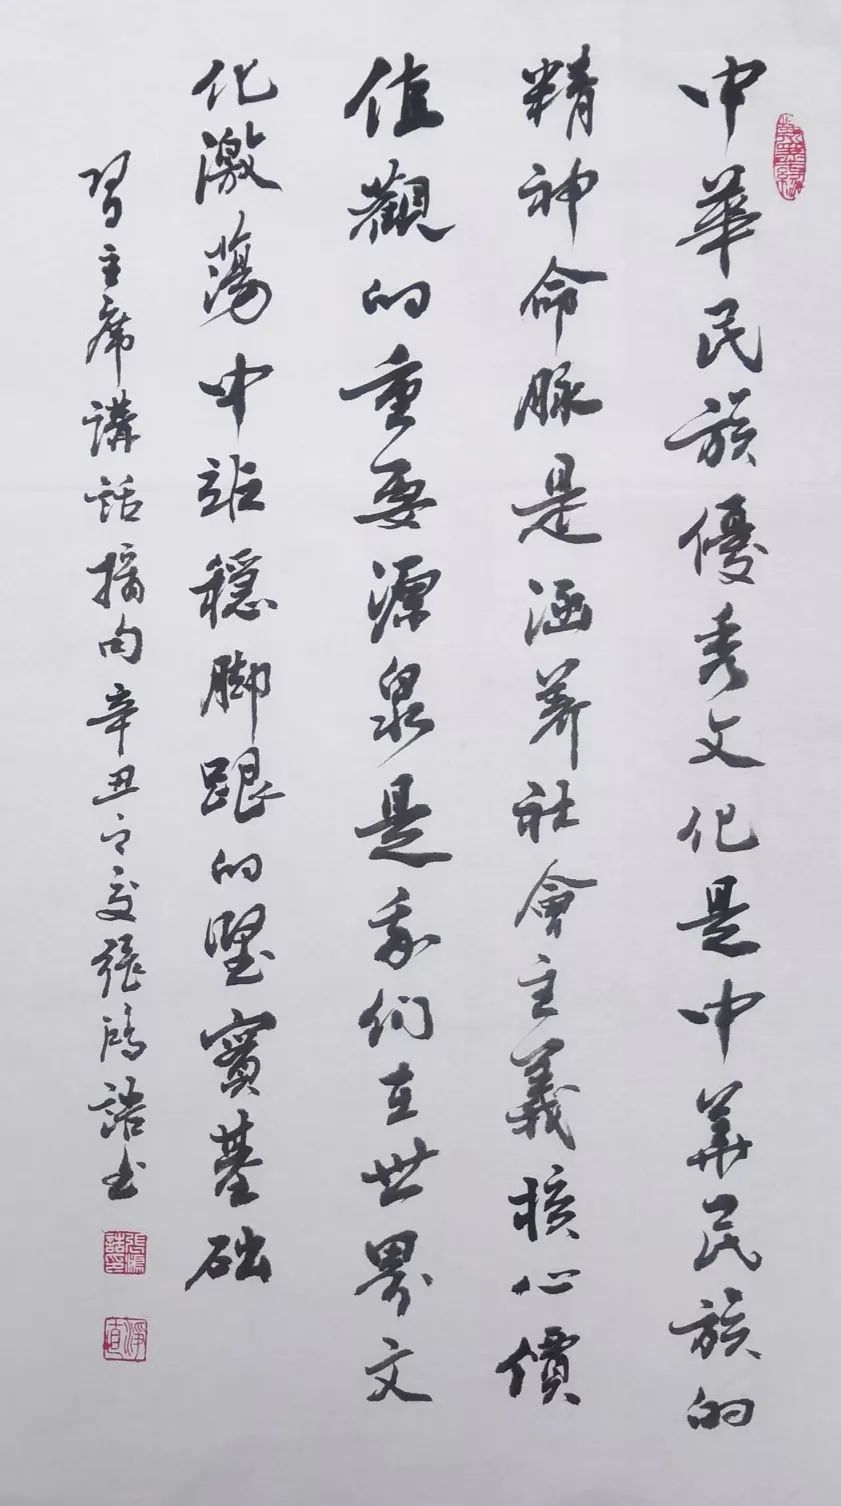 中華民族優秀文化是中華民族的
精神命脉是涵養社會主義核心價
值觀的重要源泉是我们在世界文
化激蕩中站穩脚跟的堅實基础
習主席講話摘句辛丑之夏張鴻誥书
張鴻誥印